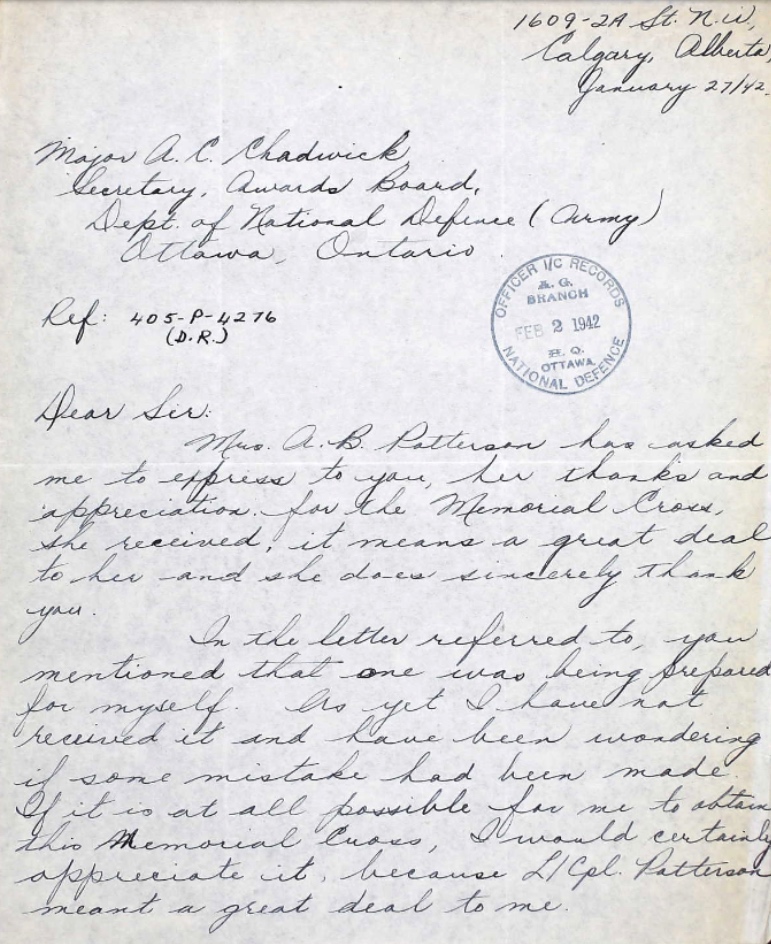 1609-2A St. N.W.,
Calgary, Alberta,
January 27/42.
Major A. C. Chadwick,
Secretary, Awards Board,
Dept. of National Defence (Army)
Ottawa, Ontario.
OFFICER I/C RECORDS
A. G.
BRANCH
FEB 2 1942
H. Q.
OTTAWA
NATIONAL DEFENCE
Ref: 405-P-4276
(D.R.)
Dear Sir:
Mrs. A. B. Patterson has asked
me to express to you, her thanks and
appreciation. for the Memorial Cross,
she received, it means a great deal
to her and she does sincerely thank
you.
In the letter referred to, you
mentioned that one was being prepared
for myself. As yet I have not
received it and have been wondering
if some mistake had been made.
If it is at all possible for me to obtain
this Memorial Cross, I would certainly
appreciate it, because L/Cpl. Patterson
meant a great deal to me.